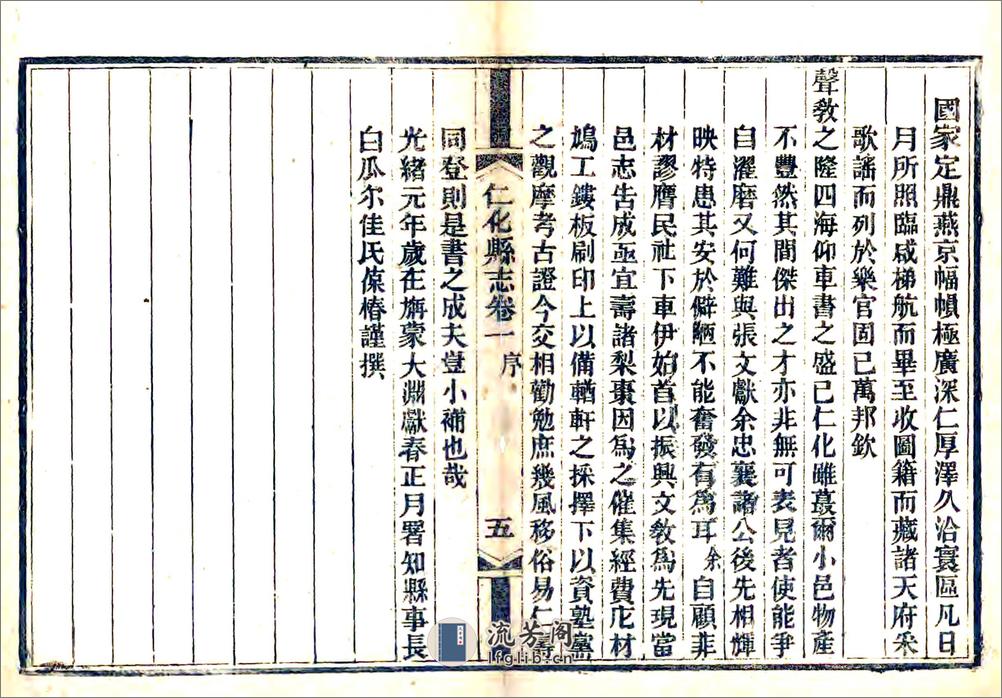 國家定鼎燕京幅幀極廣深仁厚澤久洽寰區凡日
月所照臨咸梯航而畢至收圖籍而藏諸天府采
歌謠而列於樂官固已萬邦欽
聲教之隆四海仰車書之盛已仁化雖蕞爾小邑物產
不豐然其間傑出之才亦非無可表見者使能爭
自濯磨又何難與張文獻余忠襄諸公後先相輝
映特患其安於僻陋不能奮發有為耳余自顧非
材謬膺民社下車伊始首以振興文教為先現當
邑志告成亟宜壽諸梨棗因為之催集經費庀材
鳩工鏤板刷印上以備輶軒之採擇下以資塾黌
之觀摩考古證今交相勸勉庶幾風移俗易仁壽
仁化縣志卷一 序 五
同登則是書之成夫豈小補也哉
光緒元年歲在旃蒙大淵獻春正月署知縣事長
白瓜尔佳氏葆椿謹撰
流芳阁
lfglib.cn